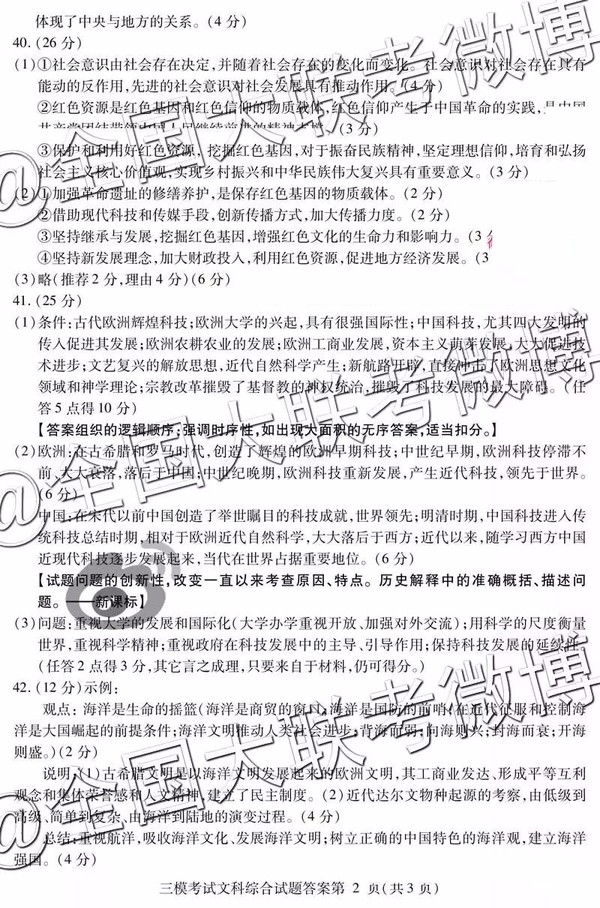 体现了中央与地方的关系。(4 分)
40. (26 分)
(1)①社会意识由社会存在决定,并随着社会存在的变化而变化。社会意识对社会存在具有
能动的反作用,先进的社会意识对社会发展具有推动作用。(4 分)
②红色资源是红色基因和红色信仰的物质载体,红色信仰产生于中国革命的实践,是中国
共产党团结带领中国人民继续前进的精神支撑。(3 分)
③保护和利用好红色资源,挖掘红色基因,对于振奋民族精神,坚定理想信仰,培育和弘扬
社会主义核心价值观,实现乡村振兴和中华民族伟大复兴具有重要意义。(3 分)
(2)①加强革命遗址的修缮养护,是保存红色基因的物质载体。(2 分)
②借助现代科技和传媒手段,创新传播方式,加大传播力度。(2 分)
③坚持继承与发展,挖掘红色基因,增强红色文化的生命力和影响力。(3 分
④坚持新发展理念,加大财政投入,利用红色资源,促进地方经济发展。(3
(3)略(推荐 2 分,理由 4 分)(6 分)
41. (25 分)
(1)条件:古代欧洲辉煌科技;欧洲大学的兴起,具有很强国际性;中国科技,尤其四大发明的
传入促进其发展;欧洲农耕农业的发展;欧洲工商业发展,资本主义萌芽发展,大大促进技
术进步;文艺复兴的解放思想,近代自然科学产生;新航路开辟,直接冲击了欧洲思想文化
领域和神学理论;宗教改革摧毁了基督教的神权统治,摧毁了科技发展的最大障碍。(任
答 5 点得 10 分)
【答案组织的逻辑顺序:强调时序性,如出现大面积的无序答案,适当扣分。】
(2)欧洲:在古希腊和罗马时代,创造了辉煌的欧洲早期科技;中世纪早期,欧洲科技停滞不
前,大大衰落,落后于中国;中世纪晚期,欧洲科技重新发展,产生近代科技,领先于世界。
(6 分)
中国:在宋代以前中国创造了举世瞩目的科技成就,世界领先;明清时期,中国科技进入传
统科技总结时期,相对于欧洲近代自然科学,大大落后于西方;近代以来,随学习西方中国
近现代科技逐步发展起来,当代在世界占据重要地位。(6 分)
【试题问题的创新性,改变一直以来考查原因、特点。历史解释中的准确概括、描述问
题。——新课标】
(3)问题:重视大学的发展和国际化(大学办学重视开放、加强对外交流);用科学的尺度衡量
世界,重视科学精神;重视政府在科技发展中的主导、引导作用;保持科技发展的延续性。
(任答 2 点得 3 分,其它言之成理,只要来自于材料,仍可得分。)
42. (12 分)示例:
观点:海洋是生命的摇篮(海洋是商贸的窗口;海洋是国防的前哨(在近代征服和控制海
洋是大国崛起的前提条件;海洋文明推动人类社会进步;背海而弱;向海则兴;封海而衰;开海
则盛。)(2 分)
说明:(1)古希腊文明是以海洋文明发展起来的欧洲文明,其工商业发达、形成平等互利
观念和集体荣誉感和人文精神,建立了民主制度。(2)近代达尔文物种起源的考察,由低级到
高级、简单到复杂、由海洋到陆地的演变过程。(4 分)
总结:重视航洋,吸收海洋文化、发展海洋文明;树立正确的中国特色的海洋观,建立海洋
强国。(4 分)
三模考试文科综合试题答案第 2 页(共 3 页)
@全国大联考微博
@全国大联考微博
@全国大联考微博